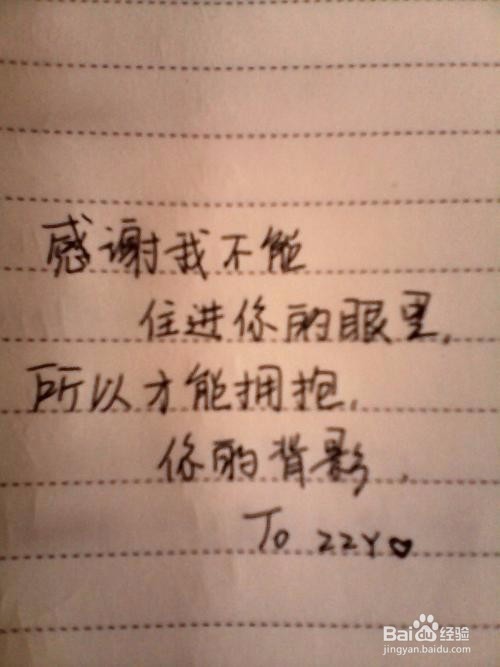 感谢我不能
住进你的眼里.
所以才能拥抱.
你的背影.
To ZZY♡
Baidu经验
jingyan.baidu.com